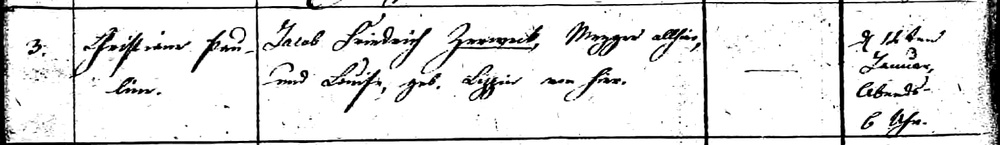 3.
Christiane Pau-
line.
Jacob Friedrich Zerweck, Mezger allhier,
und Louise, geb. von hier.
d 12ten
Januar,
Abends
6 Uhr.